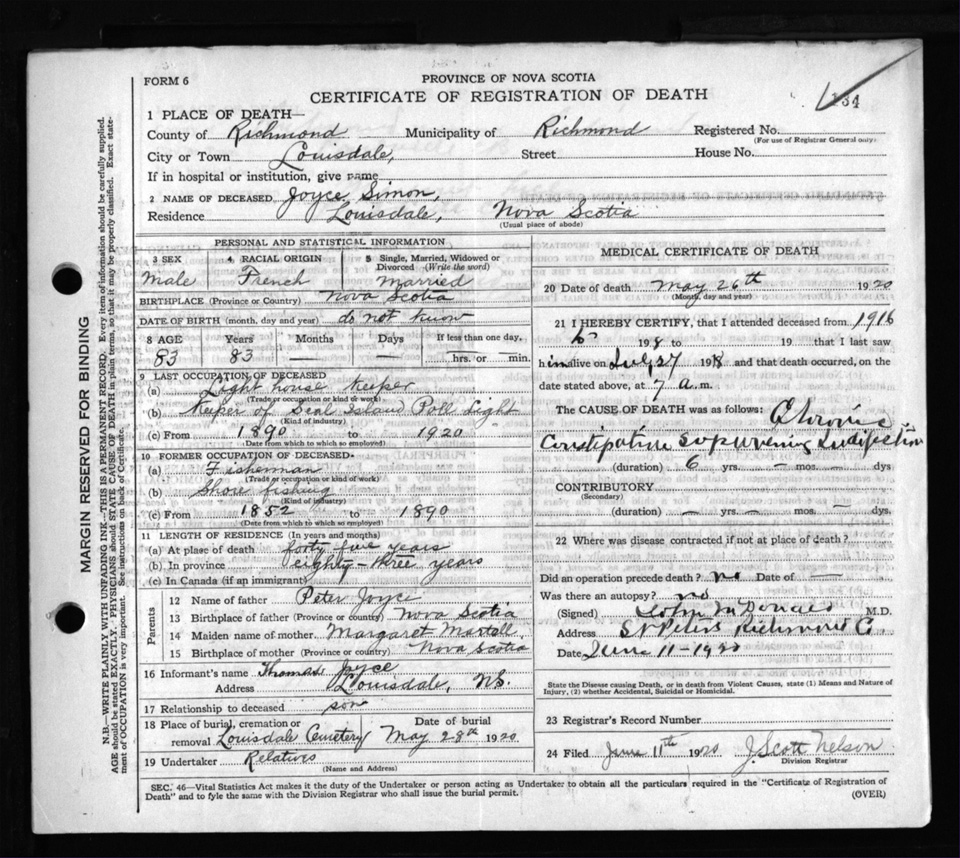 FORM 6
PROVINCE OF NOVA SCOTIA
CERTIFICATE OF REGISTRATION OF DEATH
134
1 PLACE OF DEATH—
County of Richmond Municipality of Richmond Registered No.
(For use of Registrar General only)
City or Town Louisdale, Street House No.
If in hospital or institution, give name
2 NAME OF DECEASED Joyce, Simon,
Residence Louisdale, Nova Scotia
(Usual place of abode)
PERSONAL AND STATISTICAL INFORMATION
3 SEX 4 RACIAL ORIGIN 5 Single, Married, Widowed or Divorced (Write the word)
Male French Married
BIRTHPLACE (Province or Country) Nova Scotia
DATE OF BIRTH (month, day and year) do not know
8 AGE Years Months Days If less than one day,
83 83 — — hrs. or — min.
9 LAST OCCUPATION OF DECEASED
(a) Light house keeper
(Trade or occupation or kind of work)
(b) Keeper of Seal Island Poll Light
(Kind of industry)
(c) From 1890 to 1920
(Date from which to which so employed)
10 FORMER OCCUPATION OF DECEASED
(a) Fisherman
(Trade or occupation or kind of work)
(b) Shore fishing
(Kind of industry)
(c) From 1852 to 1890
(Date from which to which so employed)
11 LENGTH OF RESIDENCE (In years and months)
(a) At place of death forty five years
(b) In province eighty-three years
(c) In Canada (if an immigrant)
Parents
12 Name of father Peter Joyce
13 Birthplace of father (Province or country) Nova Scotia
14 Maiden name of mother Margaret Martell
15 Birthplace of mother (Province or country) Nova Scotia
16 Informant's name Thomas Joyce
Address Louisdale, N.S.
17 Relationship to deceased son
18 Place of burial, cremation or removal Louisdale Cemetery Date of burial May 28th 1920
19 Undertaker Relatives
(Name and Address)
MEDICAL CERTIFICATE OF DEATH
20 Date of death May 26th 1920
(Month, day and year)
21 I HEREBY CERTIFY, that I attended deceased from 1916
to 1918 to 19 that I last saw
him alive on July 27 1918 and that death occurred, on
date stated above, at 7 a.m.
The CAUSE OF DEATH was as follows: Chronic
Constipation supervening Indigestion
(duration) 6 yrs. — mos. — dys
CONTRIBUTORY
(Secondary)
(duration) — yrs. — mos. — dys.
22 Where was disease contracted if not at place of death?
Did an operation precede death? no Date of —
Was there an autopsy? no
(Signed) John McDonald M.D.
Address St Peters Richmond Co
Date June 11-1920
State the Disease causing Death, or in death from Violent Causes, state (1) Means and Nature of Injury, (2) whether Accidental, Suicidal or Homicidal.
23 Registrar's Record Number
24 Filed June 11th 1920 J. Scott Nelson
Division Registrar
SEC. 46—Vital Statistics Act makes it duty of the Undertaker or person acting as Undertaker to obtain all the particulars required in the "Certificate of Registration of
Death" and to fyle the same with the Division Registrar who shall issue the burial permit.
(OVER)
MARGIN RESERVED FOR BINDING
N.B.—WRITE PLAINLY WITH UNFADING INK—THIS IS A PERMANENT RECORD. Every item of information should be carefully supplied.
AGE should be stated EXACTLY. PHYSICIANS should STATE CAUSE OF DEATH in plain terms, so that it may be properly classified. Exact statement of OCCUPATION is very important. See instructions on back of Certificate.